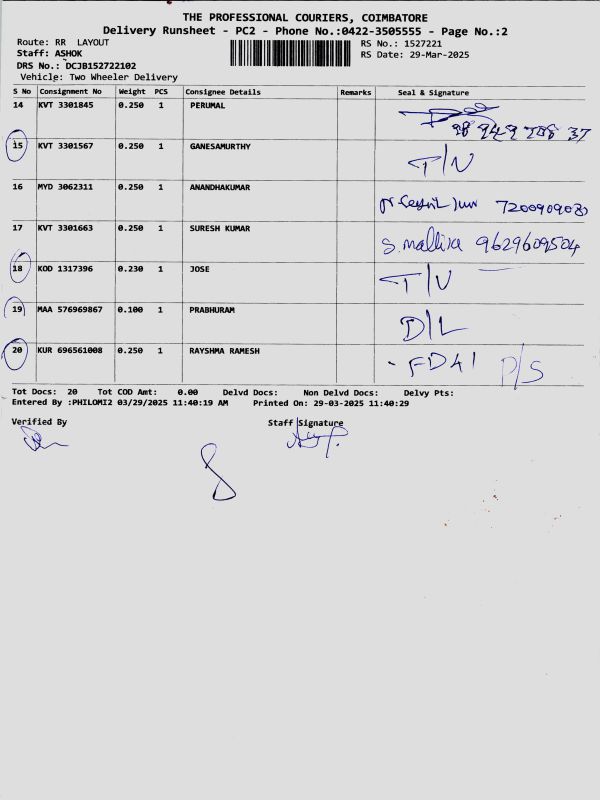 THE PROFESSIONAL COURIERS, COIMBATORE
Delivery Runsheet - PC2 - Phone No.:0422-3505555 - Page No.:2
Route: RR LAYOUT
RS No.: 1527221
Staff: ASHOK
RS Date: 29-Mar-2025
DRS No.: DCJB152722102
Vehicle: Two Wheeler Delivery
S No Consignment No Weight PCS Consignee Details Remarks Seal & Signature
14 KVT 3301845 0.250 1 PERUMAL
15 KVT 3301567 0.250 1 GANESAMURTHY T/N
16 MYD 3062311 0.250 1 ANANDHAKUMAR
17 KVT 3301663 0.250 1 SURESH KUMAR S. mallika 9629609504
18 KOD 1317396 0.230 1 JOSE
19 MAA 576969867 0.100 1 PRABHURAM D/L
20 KUR 696561008 0.250 1 RAYSHMA RAMESH P/S
Tot Docs: 20 Tot COD Amt: 0.00 Delvd Docs: Non Delvd Docs: Delvy Pts:
Entered By :PHILOMI2 03/29/2025 11:40:19 AM Printed On: 29-03-2025 11:40:29
Verified By Staff Signature